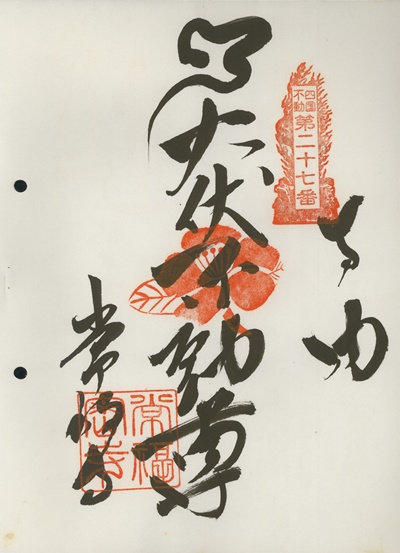 四国
不動
第二十七番
火伏不動尊
常福寺
常福